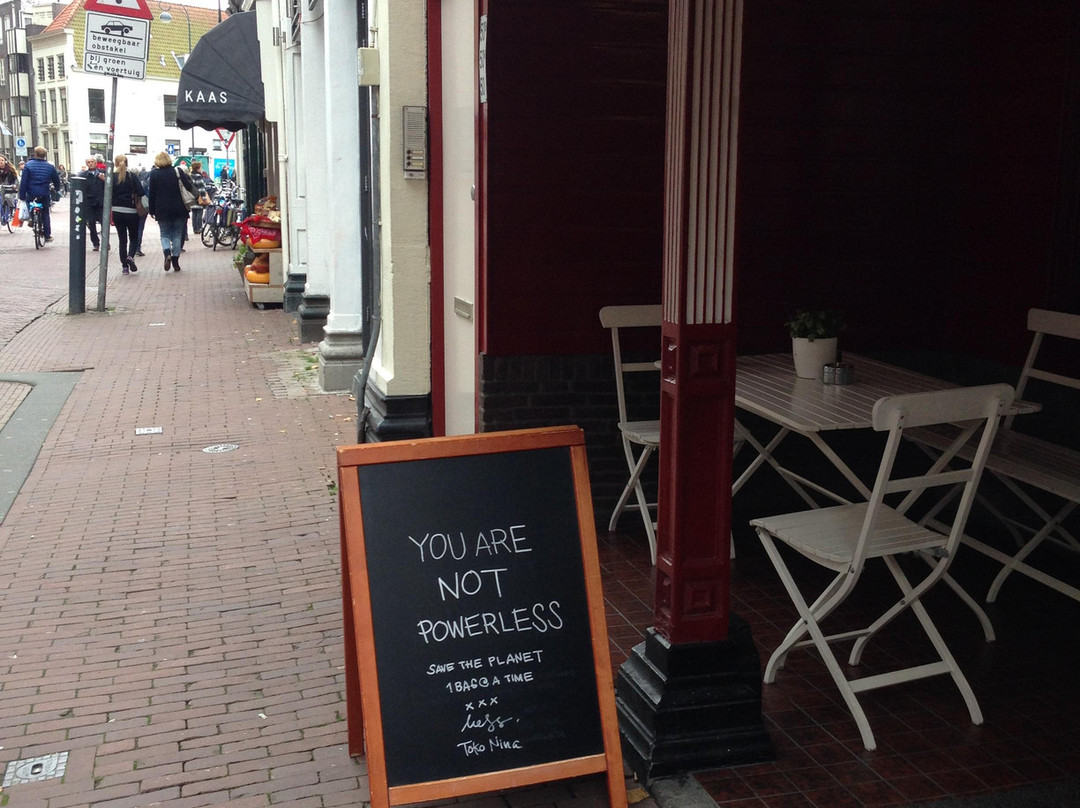 KAAS
beweegbaar
obstakel
bij groen
één voertuig
KAAS
YOU ARE
NOT
POWERLESS
SAVE THE PLANET
1 BAG @ A TIME
xxx
Toko Nina